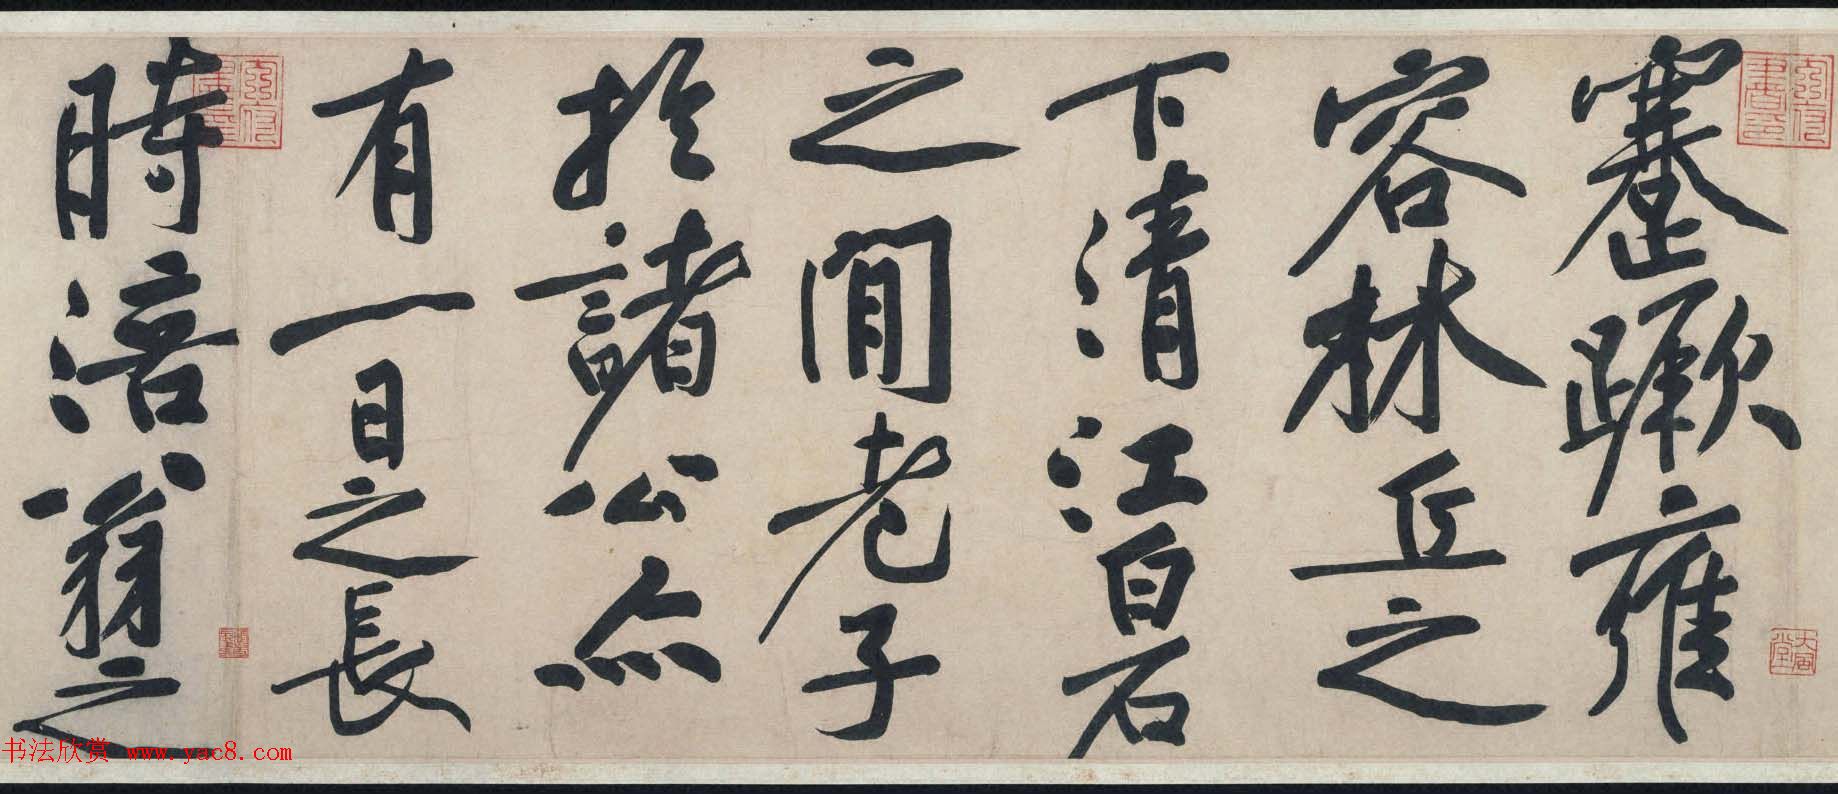 蹇蹶雍
容林丘之
下清江白石
之閒老子
於諸公亦
有一日之長
時涪翁之
大風堂
书法欣赏 www.yac8.com